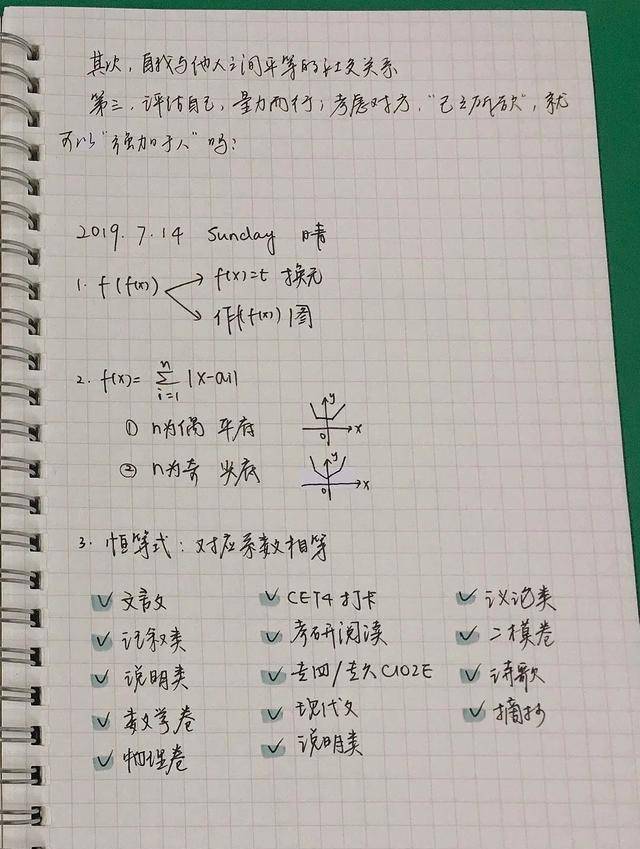 其次，自我与他人之间平等的社交关系
第三，评估自己，量力而行；考虑对方，“己之所欲”，就
可以“强加于人”吗？
2019.7.14 Sunday 晴
1. f(f(x))
f(x)=t 换元
作f(f(x))图
2. f(x)= n∑i=1 |x-ai|
① n为偶 平底
y
0 x
② n为奇 尖底
y
0 x
3. 恒等式：对应系数相等
✓ 文言文 ✓ CET4打卡 ✓ 议论类
✓ 记叙类 ✓ 考研阅读 ✓ 二模卷
✓ 说明类 ✓ 专四/专八CLOZE ✓ 诗歌
✓ 数学卷 ✓ 现代文 ✓ 摘抄
✓ 物理卷 ✓ 说明类